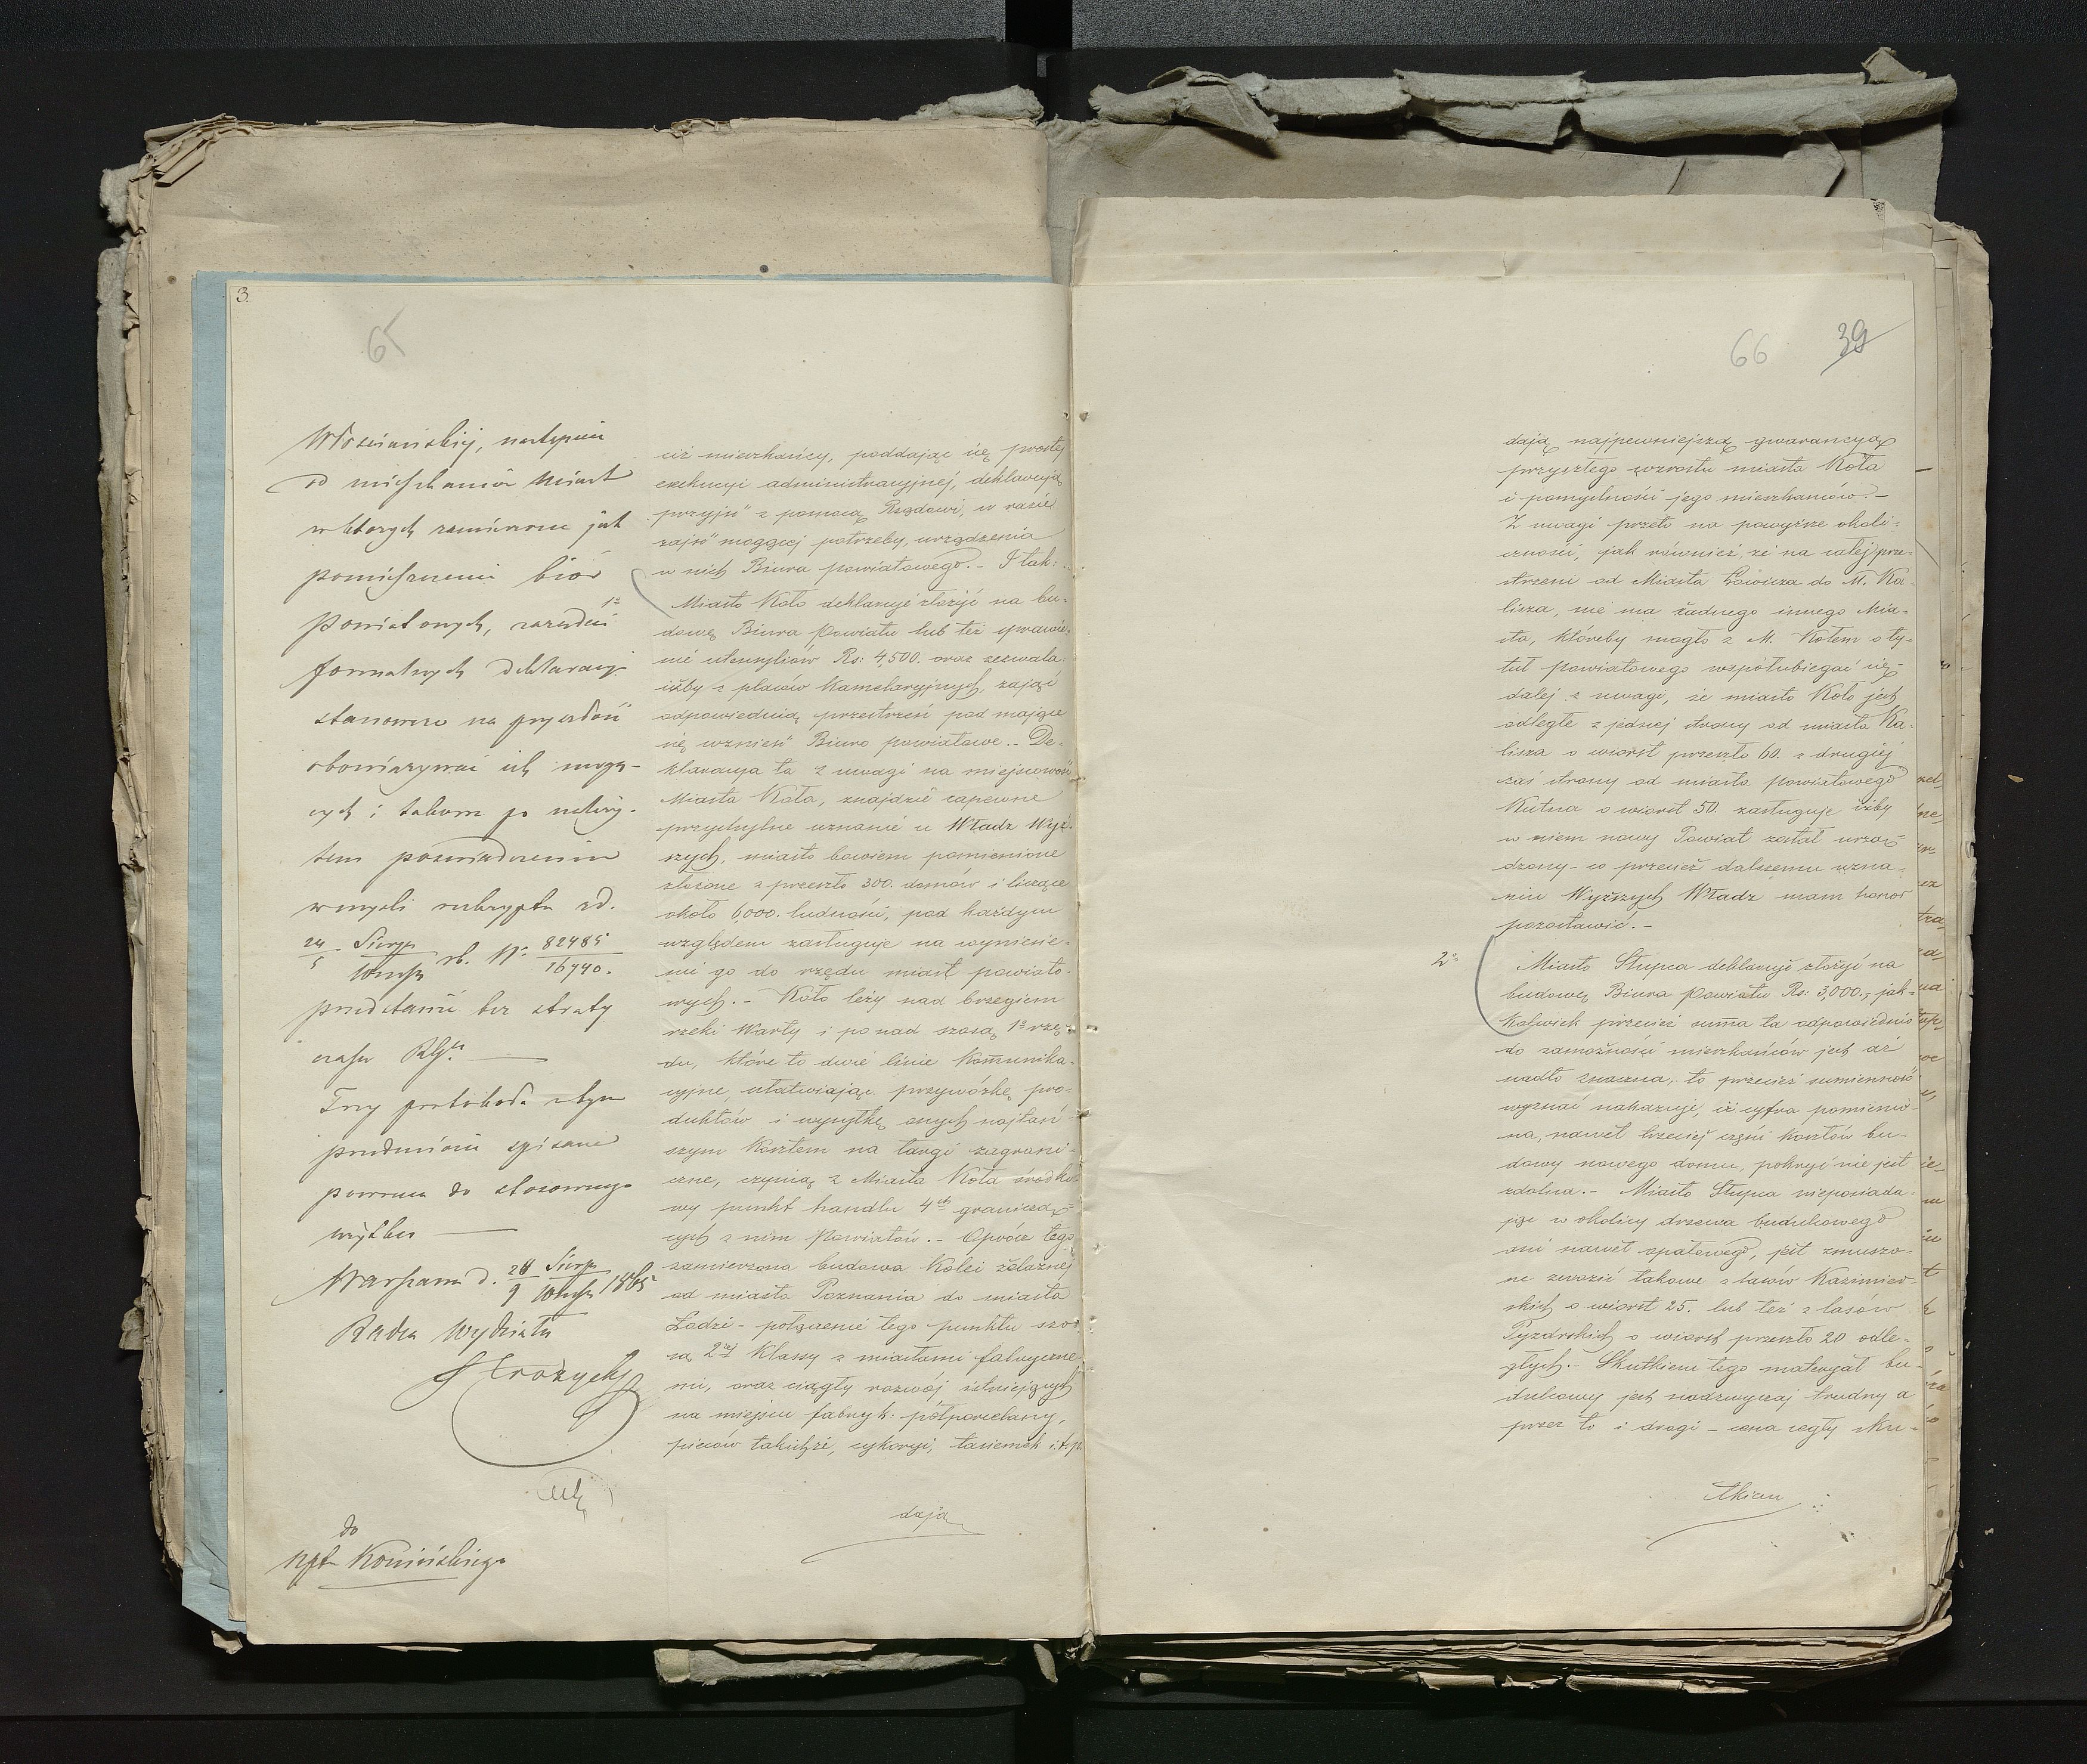 3.
65
Włościańskiej, następnie
od mieszkańców Miast
w których zamierzone jest
pomieszczenie biór
Powiatowych, zażądać
formalnych deklaracyj
stanowczo na przyszłość
obowiązywać ich mogą-
cych i takowe po należy-
tem poświadczeniu
w myśli reskryptu z d.
24/5 Sierp/Wrześ rb. N: 82485/16740.
przedstawić bez straty
czasu
Trzy protokoła w tym
przedmiocie spisane
powraca do stosownego
użytku
Warszawa d. 28/9 Sierp/Wrześ 1865
Radca Wydziału
do
Konińskiego
ciż mieszkańcy, poddając się prostej
exekucyi administracyjnej, deklarują
przyjść z pomocą Rządowi, w razie
zajść mogącej potrzeby, urządzenia
w nich Biura powiatowego. - I tak:
1o
Miasto Koło deklaruje złożyć na bu-
dowę Biura Powiatu lub też sprawie-
nie utensyliów Rs: 4,500. oraz zezwala
iżby z placów Kamelaryjnych, zająć
odpowiednią przestrzeń pod mające
się wznieść Biuro powiatowe. - De-
klaracya ta z uwagi na miejscowość
Miasta Koła, znajdzie zapewne
przychylne uznanie u Władz Wyż-
szych, miasto bowiem pomienione
złożone z przeszło 300. domów i liczące
około 6,000. ludności, pod każdym
względem zasługuje na wyniesie-
nie go do rzędu miast powiato-
wych. - Koło leży nad brzegiem
rzeki Warty i ponad szosą 1o rzę-
du, które to dwie linie Komunika-
cyjne, ułatwiając przywózkę pro-
duktów i wysyłkę onych najtań-
szym Kosztem na targi zagrani-
czne, czynią z Miasta Koła środko-
wy punkt handlu 4ch graniczą-
cych z nim Powiatów. - Oprócz tego
zamierzona budowa Kolei żelaznej
od miasta Poznania do miasta
Łodzi - połączenie tego punktu szo-
są 2ej Klassy z miastami fabryczne-
mi, oraz ciągły rozwój istniejących
na miejscu fabryk: półporcelany,
pieców takichże, cykoryi, tasiemek i.t.p.
dają
66 39
dają najpewniejszą gwarancyą
przyszłego wzrostu miasta Koła
i pomyślności jego mieszkańców. -
Z uwagi przeto na powyższe okoli-
czności, jak również, że na całej prze-
strzeni od Miasta Łowicza do M. Ka-
lisza, nie ma żadnego innego Mia-
sta, któreby mogło z M. Kołem o ty-
tuł powiatowego współubiegać się -
dalej z uwagi, że miasto Koło jest
odległe z jednej strony od miasta Ka-
lisza o wiorst przeszło 60. z drugiej
zaś strony od miasta powiatowego
Kutna o wiorst 50. zasługuje iżby
w niem nowy Powiat został urzą-
dzony - co przecież dalszemu uzna-
niu Wyższych Władz mam honor
pozostawić. -
2o
Miasto Słupca deklaruje złożyć na
budowę Biura Powiatu Rs: 3,000.- jak-
kolwiek przecież summa ta odpowiednio
do zamożności mieszkańców jest aż
nadto znaczna, to przecież sumienność
wyznać nakazuje, iż cyfra pomienio-
na, nawet trzeciej części kosztów bu-
dowy nowego domu, pokryć nie jest
zdolna. - Miasto Słupca nieposiada-
jąc w okolicy drzewa budulcowego
ani nawet opałowego, jest zmuszo-
ne zwozić takowe z lasów Kazimier-
skich o wiorst 25. lub też z lasów
Pyzdrskich o wiorst przeszło 20 odle-
głych. - Skutkiem tego materyał bu-
dulcowy jest nadzwyczaj trudny a
przez to i drogi - cena cegły sku-